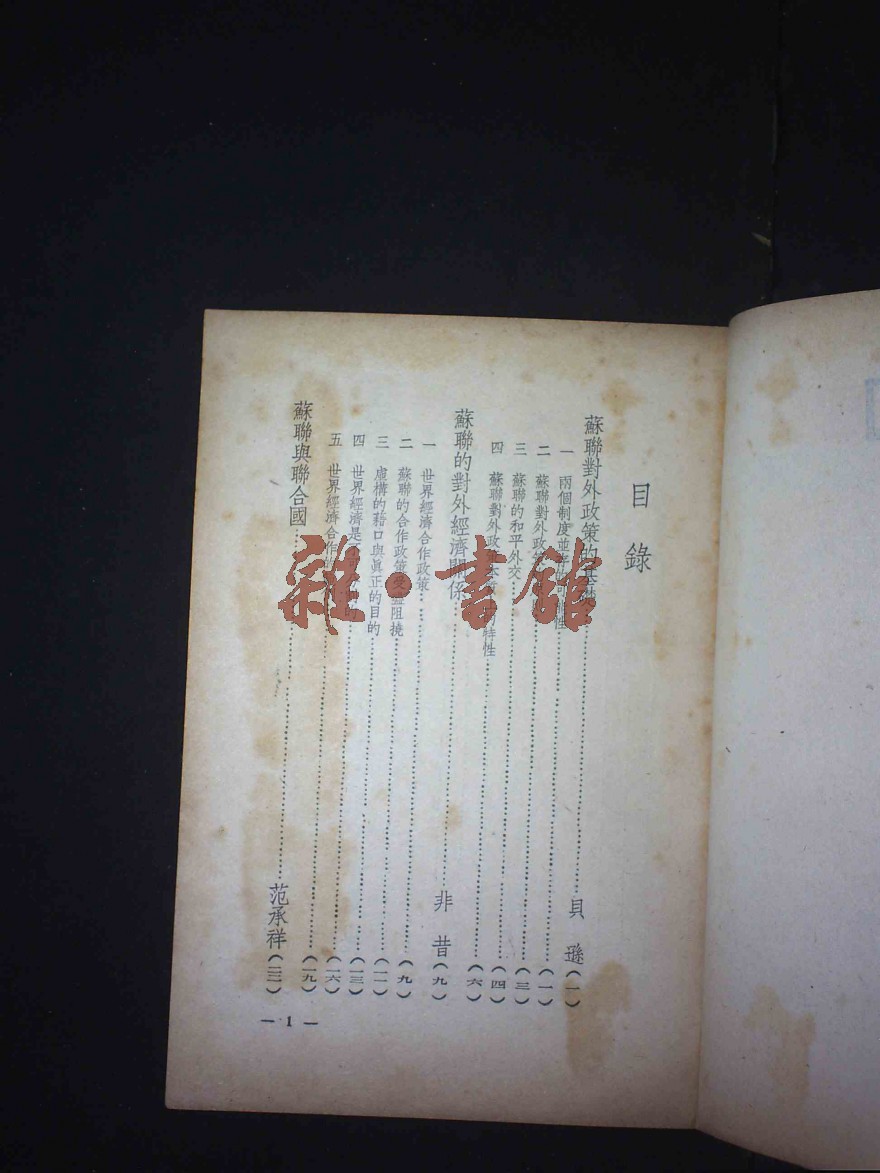 目錄
蘇聯對外政策的基礎……貝遜(一)
一 兩個制度並存……性……(一)
二 蘇聯對外政策……(三)
三 蘇聯的和平外交……(四)
四 蘇聯對外政策……的特性……(六)
蘇聯的對外經濟關係……非昔(九)
一 世界經濟合作政策……(九)
二 蘇聯的合作政策受盡阻撓……(一一)
三 虛構的藉口與眞正的目的……(一三)
四 世界經濟是不可……(一六)
五 世界經濟合作……(一九)
蘇聯與聯合國……范承祥(二二)
— 1 —
雜·書館